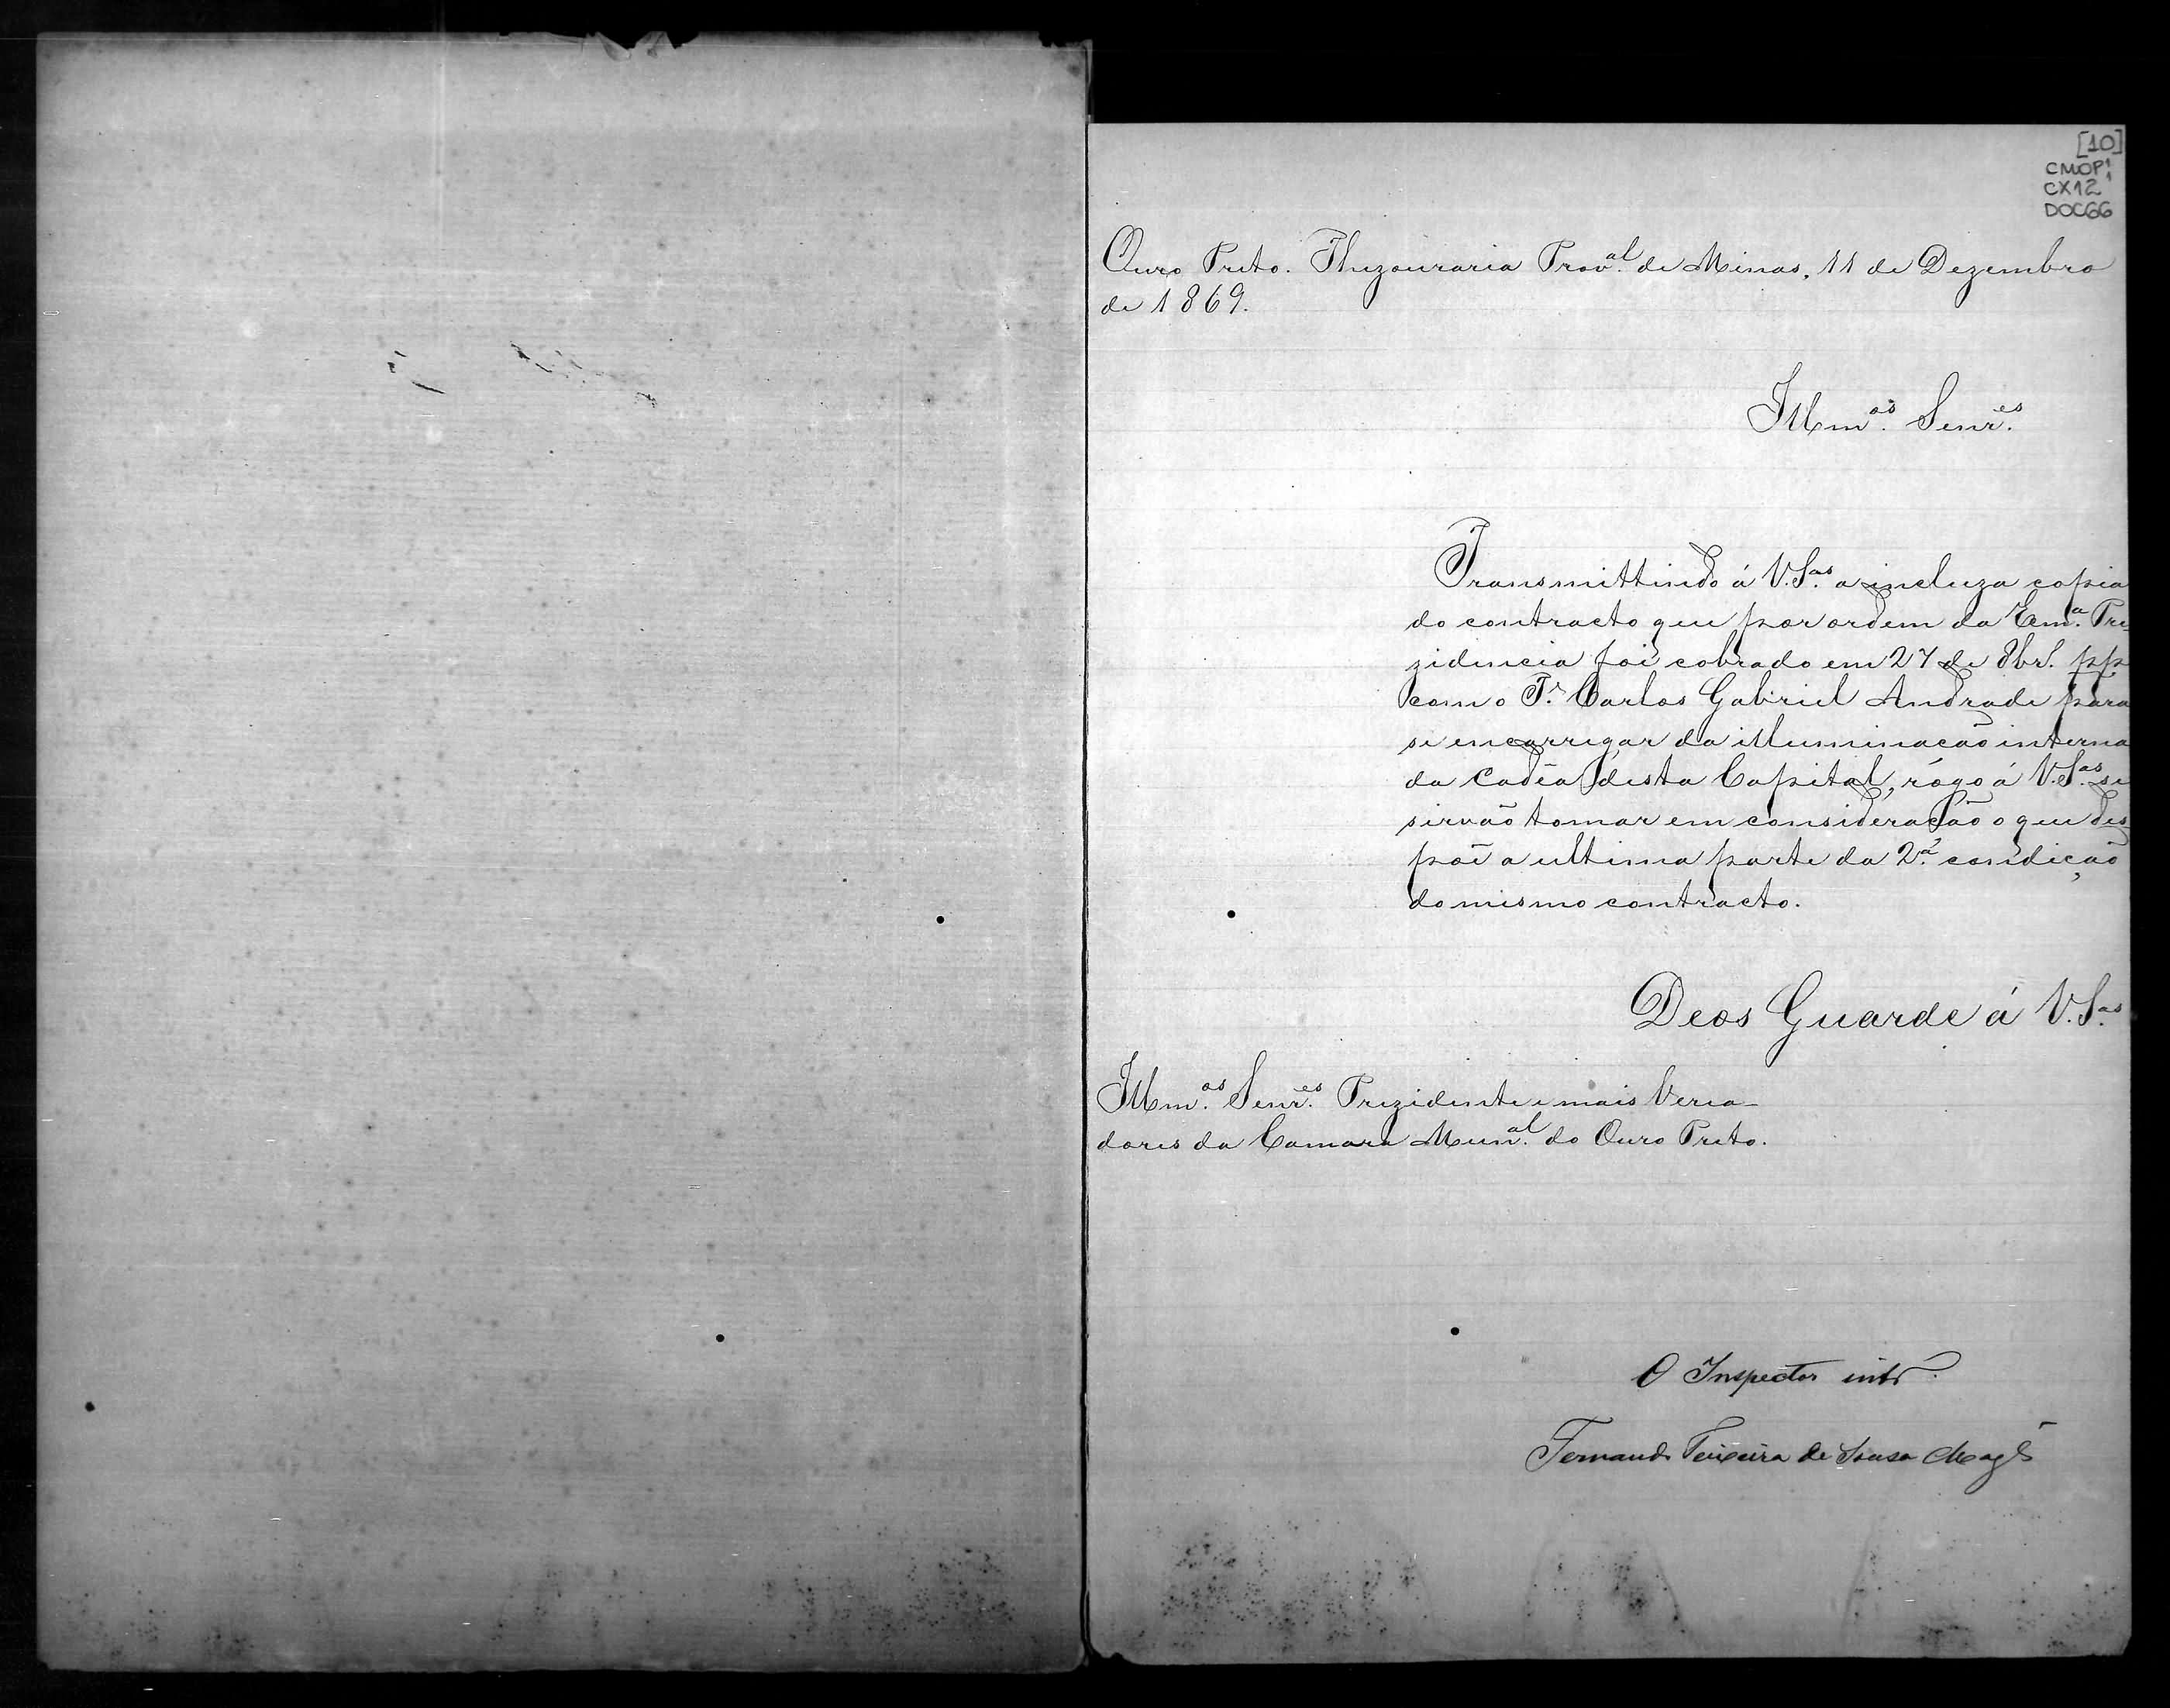 [10]
CMOP¹
CX12
DOC66
Ouro Preto. Thezouraria Prov.al de Minas, 11 de Dezembro
de 1869.
Illm.os Senr.es
Transmittindo á V.S.as a incluza copia
do contracto que por ordem da Exm.a Pre-
zidencia foi cobrado em 27 de 8br.º pp
com o T.e Carlos Gabriel Andrade para
se encarregar da illuminação interna
da Cadêa desta Capital, rógo á V.S.as se
sirvão tomar em consideração o que des-
põe a ultima parte da 2.ª condição
do mesmo contracto.
Deos Guarde á V.S.as
Illm.os Senr.es Prezidente e mais Verea-
dores da Camara Mun.al do Ouro Preto.
O Inspector intº.
Fernando Teixeira de Souza Mag.es